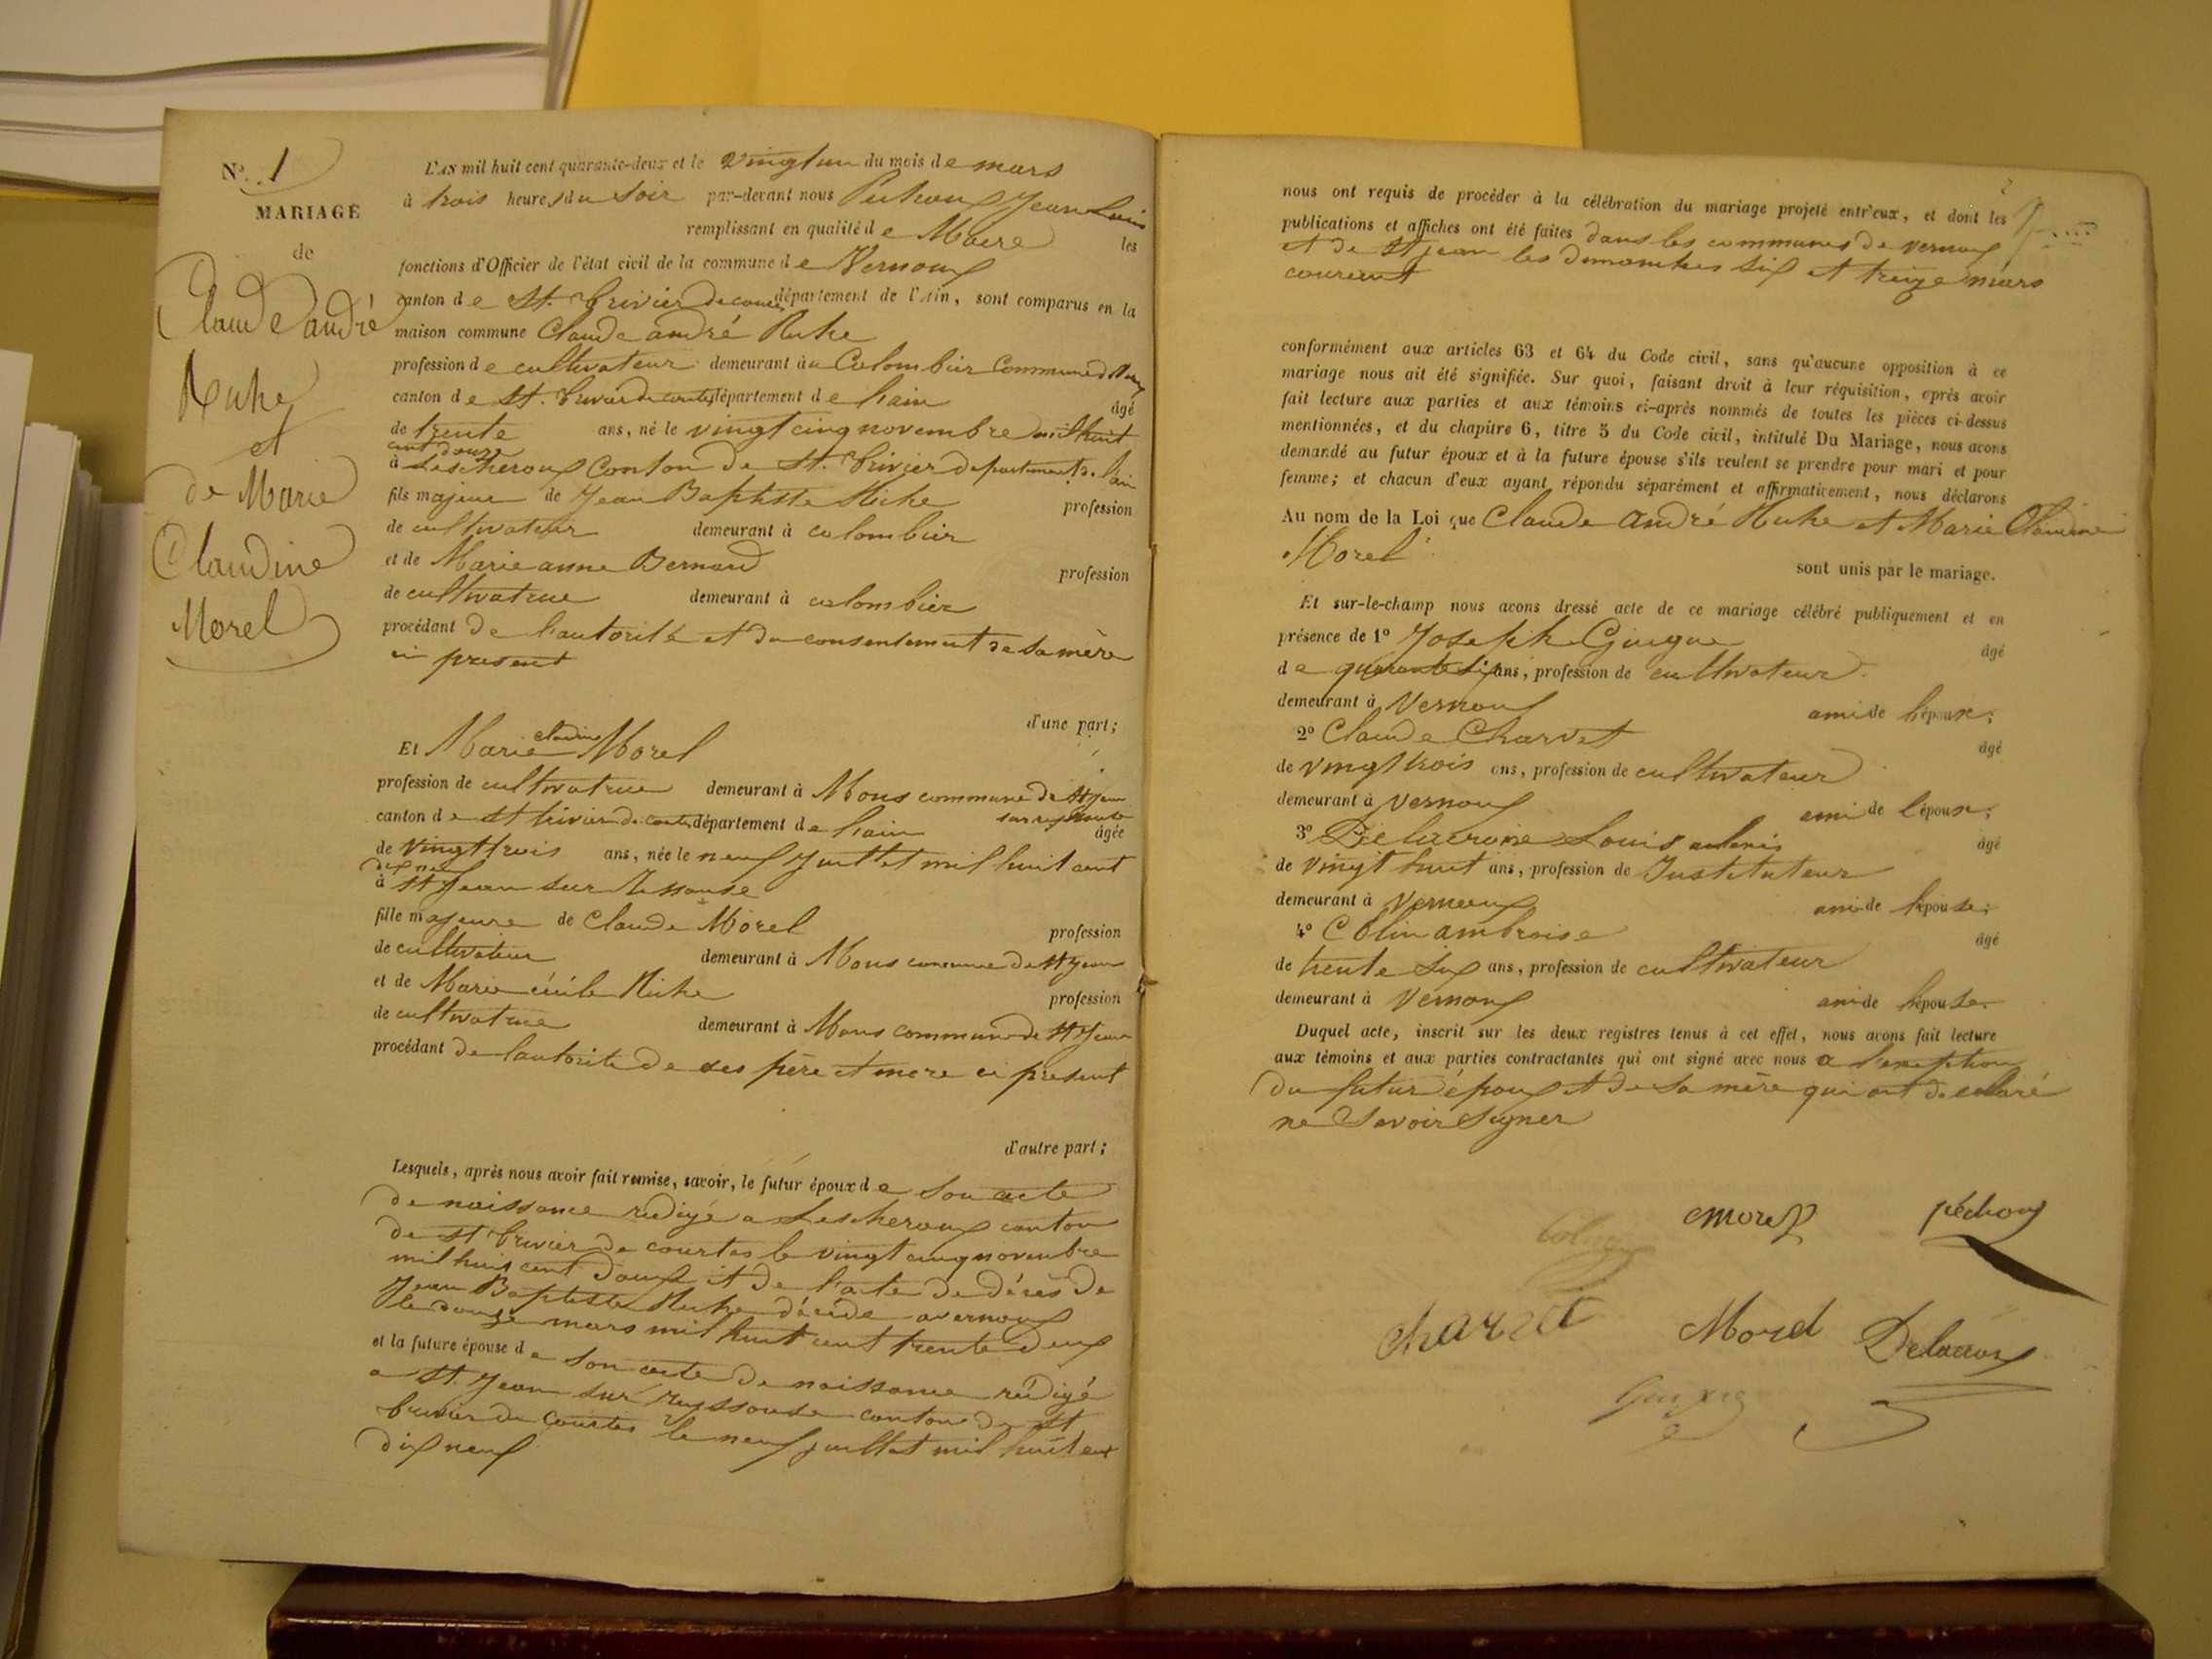 N°. 1
MARIAGE
de
Claude andré
Ruhe
et
de Marie
Claudine
Morel
L'AN mil huit cent quarante-deux et le vingt un du mois de mars
à trois heures du soir par-devant nous Jean Louis
remplissant en qualité de Maire les
fonctions d'Officier de l'état civil de la commune de Vernoux
canton de St. Trivier de courtes département de l'Ain, sont comparus en la
maison commune Claude andré Ruhe
profession de cultivateur demeurant au Colombier Commune d
canton de St. Trivier de courtes département de l'ain âgé
de trente ans, né le vingt cinq novembre mil huit
cent douze
à Lescheroux Canton de St. Trivier departement de l'ain
fils majeur de Jean Baptiste Ruhe profession
de cultivateur demeurant à colombier
et de Marie anne Bernard profession
de cultivatrice demeurant à colombier
procédant de l'autorité et du consentement de sa mère
ci present
d'une part;
Et Marie claudine Morel
profession de cultivatrice demeurant à Mons commune de St Jean
canton de St trivier de courtes département de l'ain sur reyssouse âgée
de vingt trois ans, née le neuf Juillet mil huit cent
dix neuf
à St Jean sur Ressouse
fille majeure de Claude Morel profession
de cultivateur demeurant à Mons commune de St Jean
et de Marie cécile Ruhe profession
de cultivatrice demeurant à Mons commune de St Jean
procédant de l'autorité de ses père et mere ci présent
d'autre part;
Lesquels, après nous avoir fait remise, savoir, le futur époux de son acte
de naissance rédigé a Lescheroux canton
de St Trivier de courtes le vingt cinq novembre
mil huit cent douze et de l'acte de décès de
Jean Baptiste Ruhe décédé a vernoux
le douze mars mil huit cent trente deux
et la future épouse de son acte de naissance rédigé
a St. Jean sur reyssouse canton de St
trivier de Courtes le neuf juillet mil huit cent
dix neuf
nous ont requis de procéder à la célébration du mariage projeté entr'eux, et dont les
publications et affiches ont été faites dans les communes de vernoux
et de St jean les dimanches six et treize mars
courent
conformément aux articles 63 et 64 du Code civil, sans qu'aucune opposition à ce
mariage nous ait été signifiée. Sur quoi, faisant droit à leur réquisition, après avoir
fait lecture aux parties et aux témoins ci-après nommés de toutes les pièces ci-dessus
mentionnées, et du chapitre 6, titre 5 du Code civil, intitulé Du Mariage, nous avons
demandé au futur époux et à la future épouse s'ils veulent se prendre pour mari et pour
femme; et chacun d'eux ayant répondu séparément et affirmativement, nous déclarons
Au nom de la Loi que Claude André Ruhe et Marie Claudine
Morel
sont unis par le mariage.
Et sur-le-champ nous avons dressé acte de ce mariage célébré publiquement et en
présence de 1° Joseph Guigue âgé
de quarante six ans, profession de cultivateur
demeurant à Vernoux ami de l'époux;
2° Claude Charvet âgé
de vingt trois ans, profession de cultivateur
demeurant à Vernoux ami de l'époux;
3° Delacroix Louis âgé
de vingt huit ans, profession de Instituteur
demeurant à Vernoux ami de l'épouse;
4° Colin ambroise âgé
de trente six ans, profession de cultivateur
demeurant à Vernoux ami de l'épouse.
Duquel acte, inscrit sur les deux registres tenus à cet effet, nous avons fait lecture
aux témoins et aux parties contractantes qui ont signé avec nous a l'exeption
du futur époux et de sa mère qui ont declaré
ne Savoir Signer
Morel péchoux
Charvet Morel Delacroix